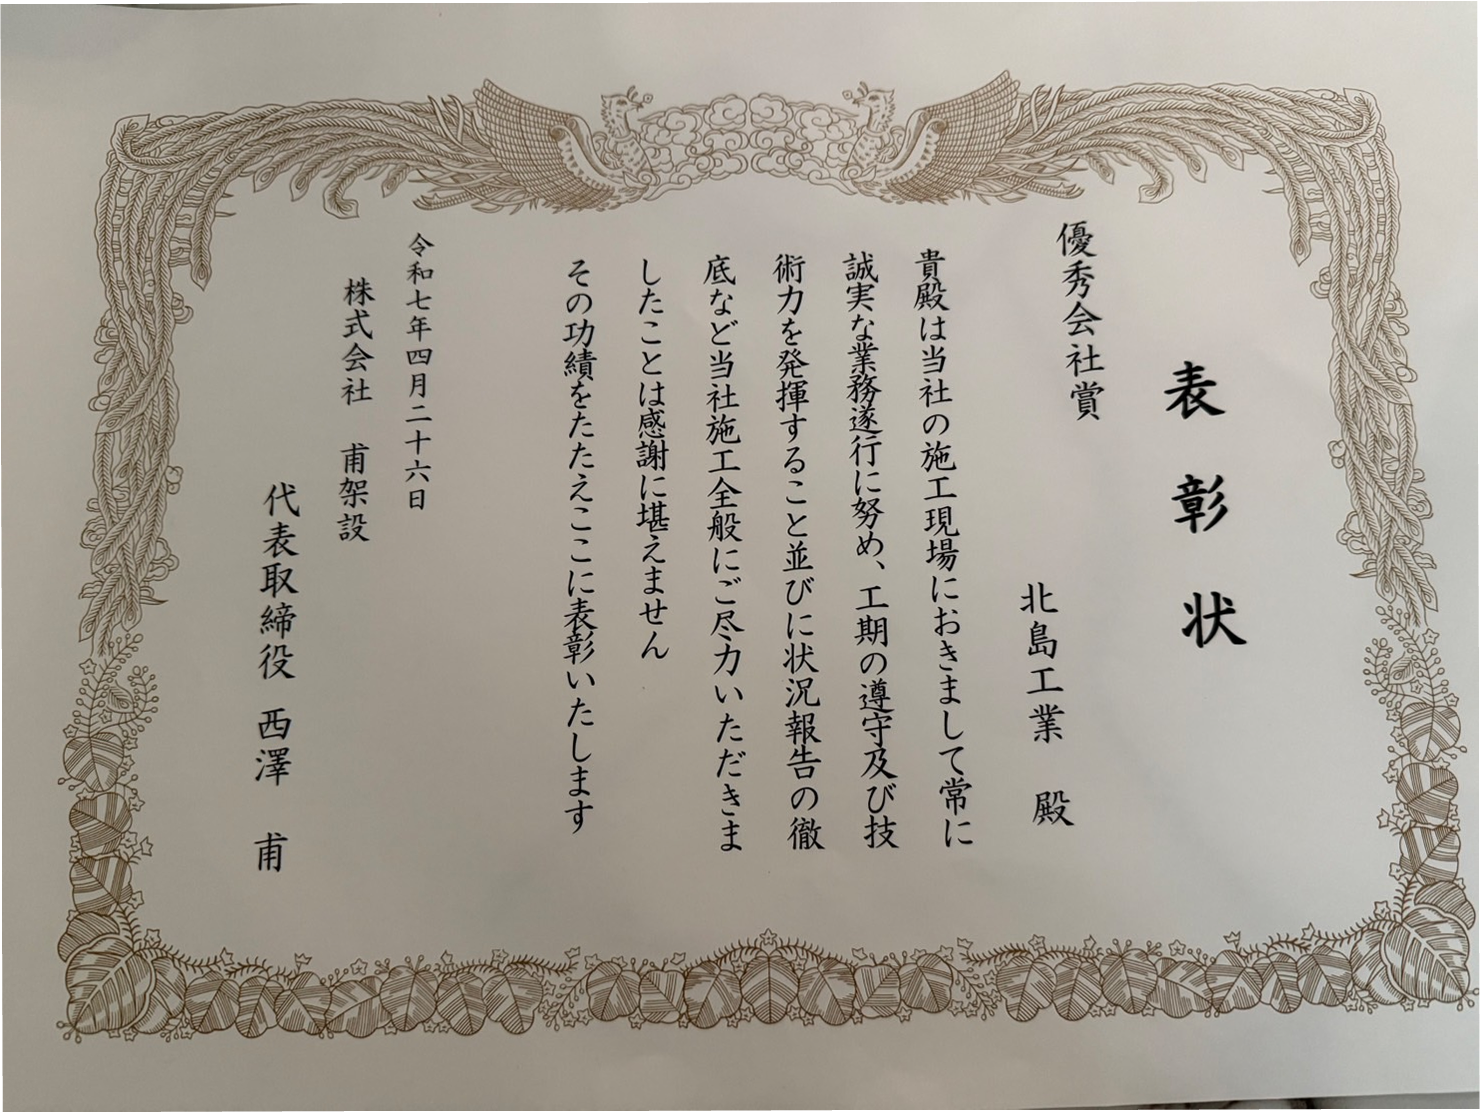 表彰状
優秀会社賞
北島工業 殿
貴殿は当社の施工現場におきまして常に
誠実な業務遂行に努め、工期の遵守及び技
術力を発揮すること並びに状況報告の徹
底など当社施工全般にご尽力いただきま
したことは感謝に堪えません
その功績をたたえここに表彰いたします
令和七年四月二十六日
株式会社 甫架設
代表取締役 西澤 甫